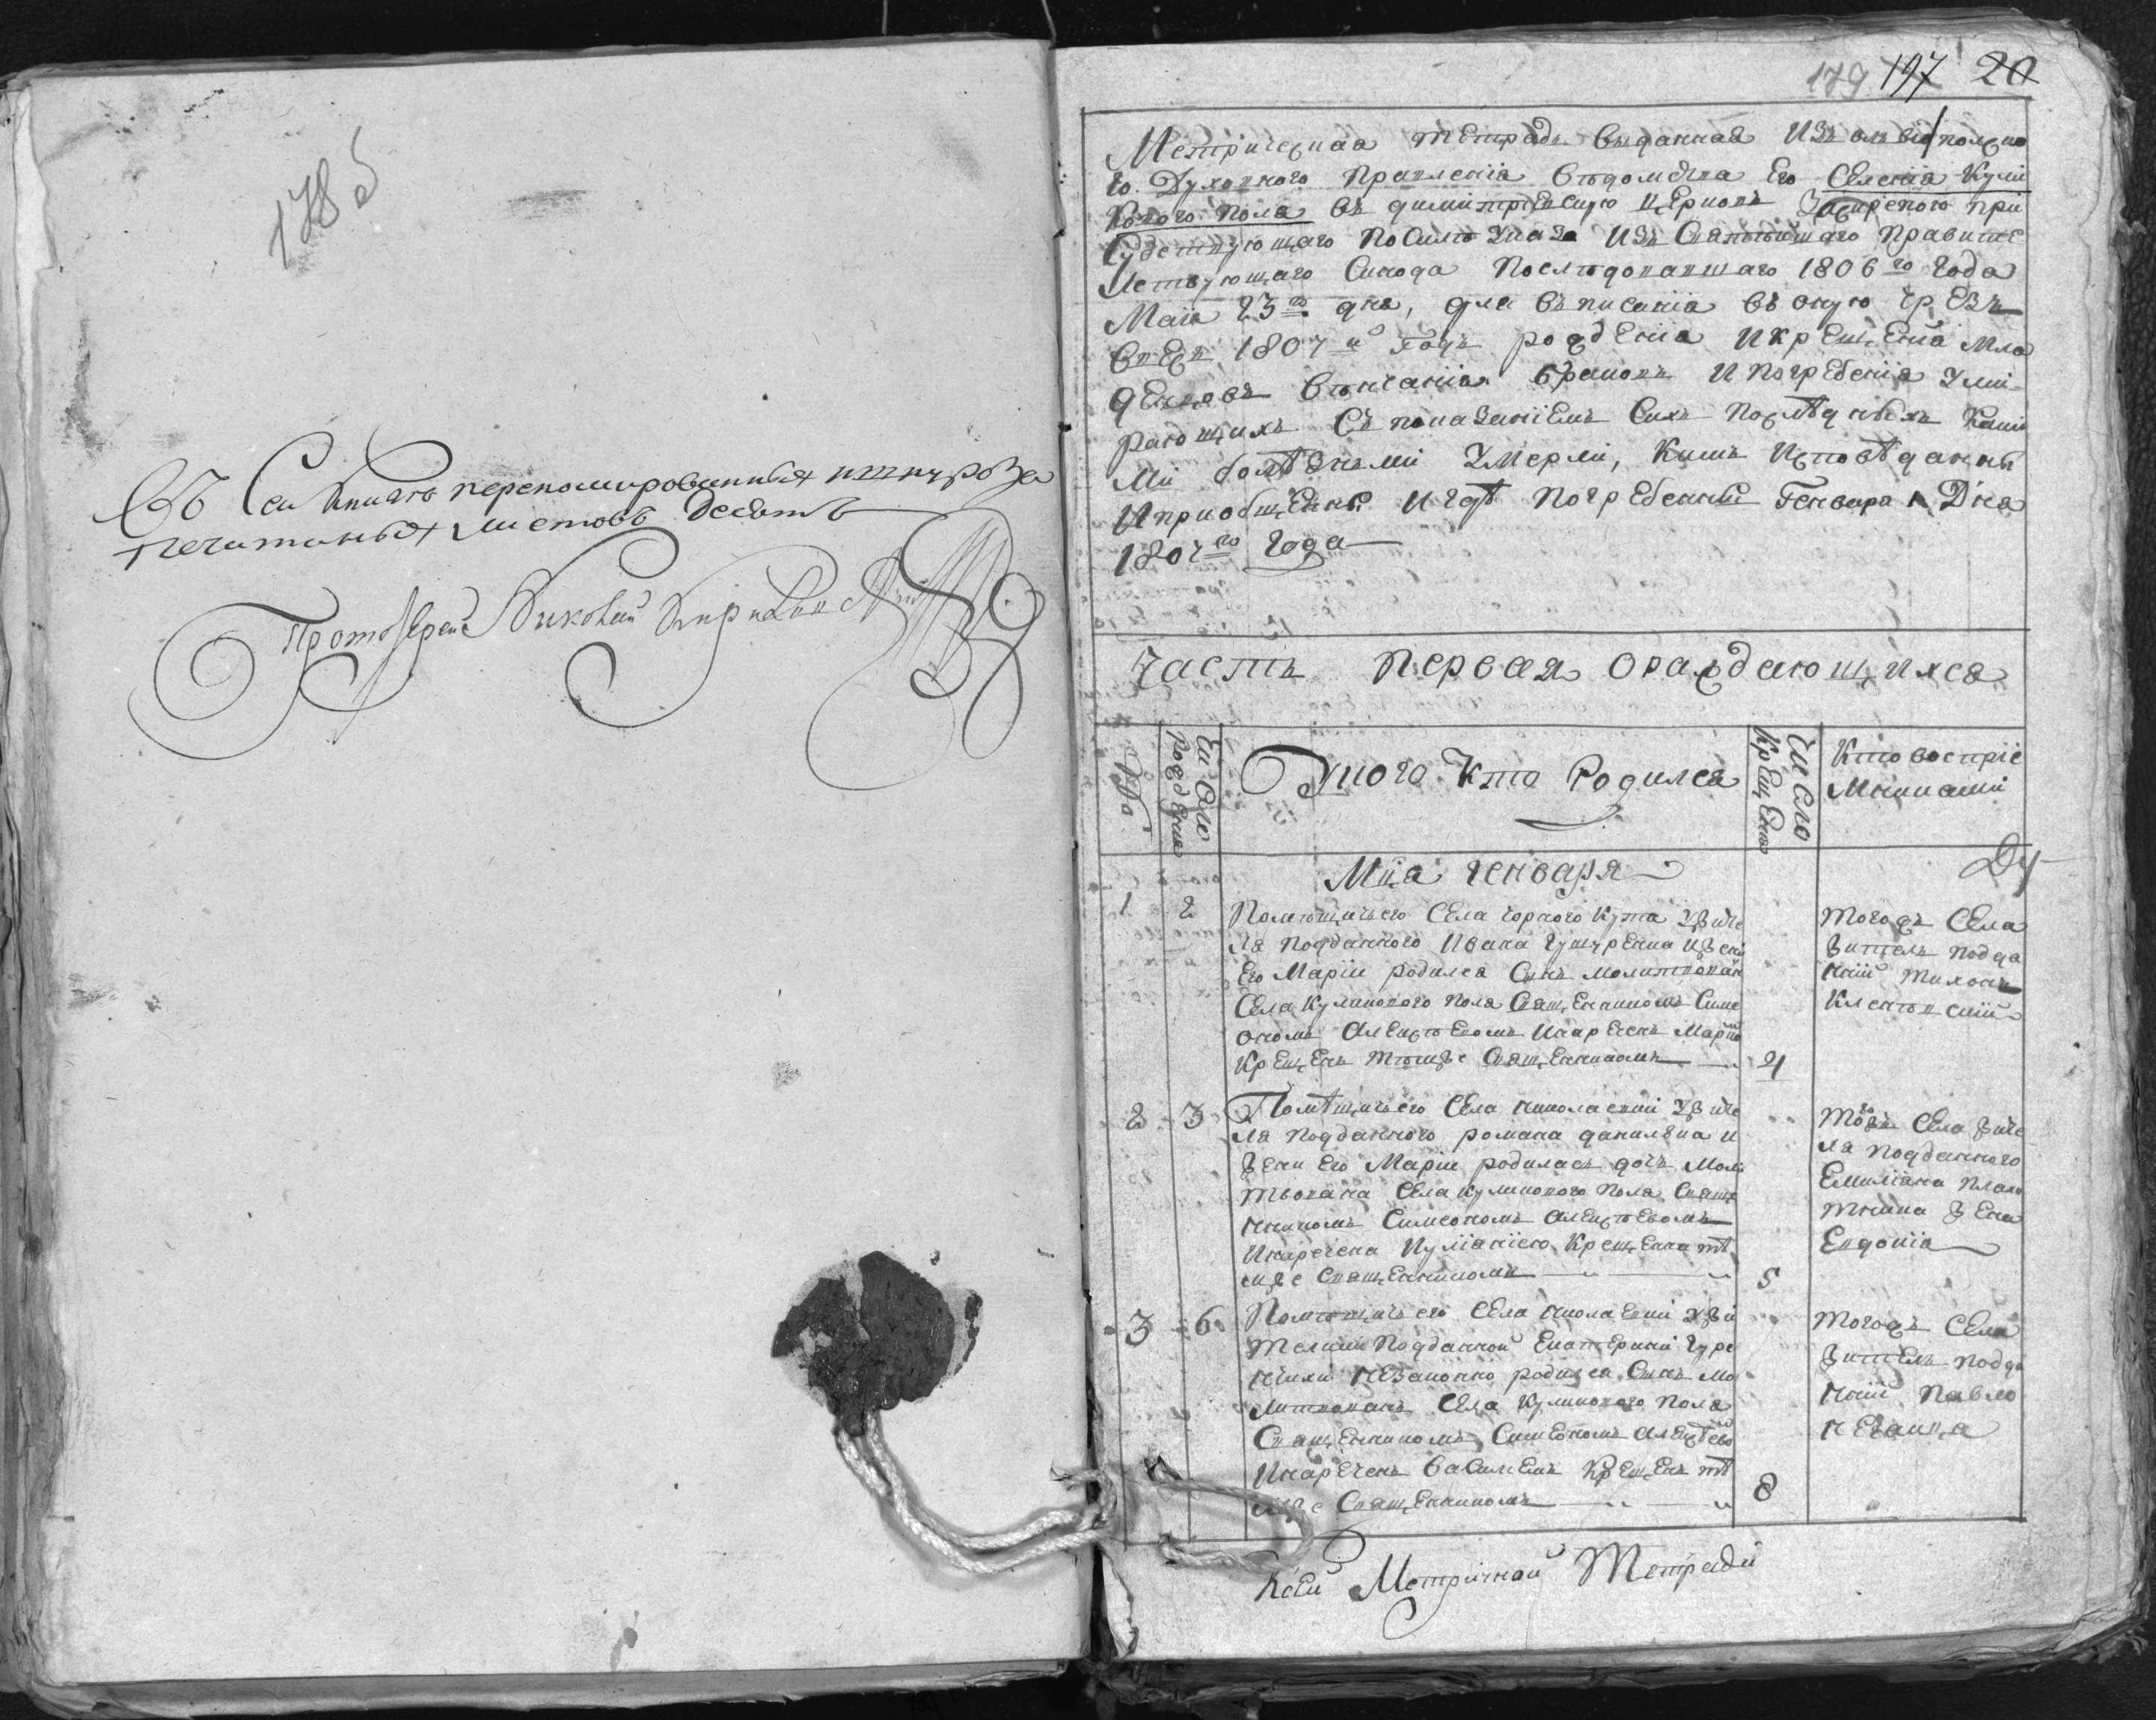 178
Въ Сей Книгѣ переномированныхъ и шнуроза
печатаныхъ листовъ десять
Протоіерей
179 197 20
Метричещная тетрадь выданная Изъ олвіополско
го Духовного Правленія вѣдомства Его Селенія Кули
кового Поля въ димитріевскую церковь
судствующаго По Силѣ указа Изъ Святѣйшаго Правите
лствующаго Синода Послѣдовавшаго 1806го года
Маіа 23го дня, для въписанія въ оную чрезъ
весь 1807й годъ рожденія И крещенія мла
денцовъ вѣнчанія браковъ И погребенія Уми
рающихъ Съ показаніемъ Сихъ послѣднихъ каки
ми болѣзньми Умерли, Кимъ Исповѣданны
И приобщенны И гдѣ Погребенны Генваря 1 Дня
1807го Года
Часть Первая о раждающихся
Число рожденія
У кого Кто Родился
Число Крещенія
Кто воспріе
мниками
Мца Генваря
Ду
1 2 Помѣщичьего Села горного Кута жите
ля подданного Ивана И жени
Его Маріи родился Синъ молитвованъ
Села Куликового Поля Священникомъ Симе
ономъ Алексѣевомъ Инареченъ
Крещенъ тѣмже Священникомъ 4
Тогожъ Села
житель подда
ній Тихонъ
2 3 Помѣщичьего Села Николаевки жите
ля Подданного романа данилена и
жени Его Маріи родилась дочь Моли
твована Села Куликового Поля Свяще
нникомъ Симеономъ Алексѣевомъ
Инаречена Иуліаніею Крещенна тѣ
мже Священникомъ 5
Тогожъ Села жите
ля подданного
Емиліана
жена
Евдокія
3 6 Помѣщичьего Села Николаевки жи
телки Подданной Екатерини
незаконно родился Синъ Мо
литвованъ Села Куликового Поля
Священникомъ Симеономъ Алексѣево
Инареченъ Василіемъ Крещенъ тѣ
мже Священникомъ 8
Тогожъ Села
житель подда
ній Павло
Ксей Метричной Тетради